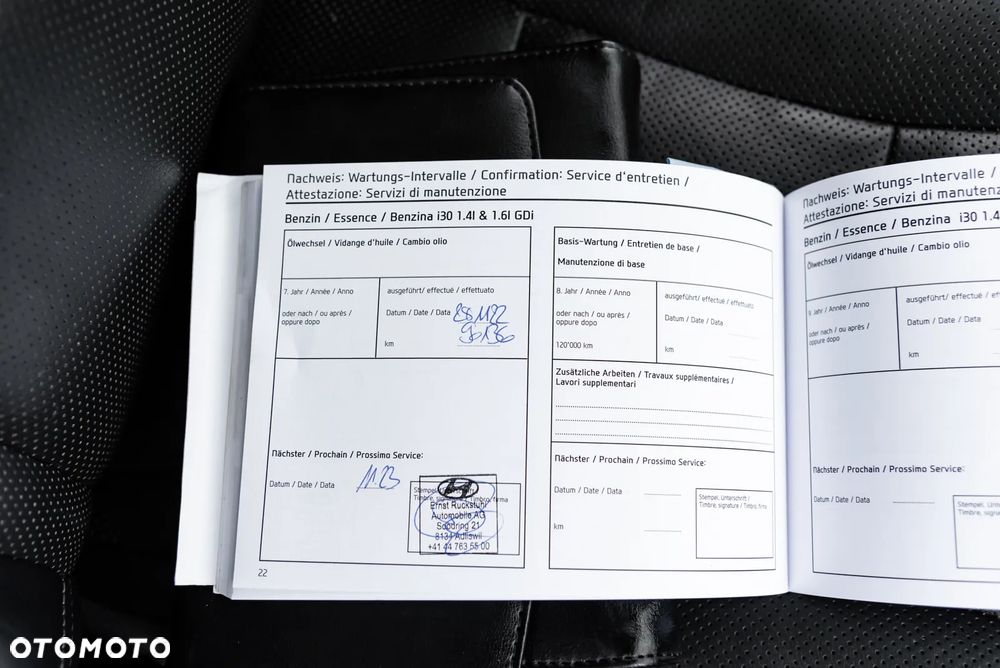 Nachweis: Wartungs-Intervalle / Confirmation: Service d'entretien /
Attestazione: Servizi di manutenzione
Benzin / Essence / Benzina i30 1.4l & 1.6l GDi
Ölwechsel / Vidange d'huile / Cambio olio
7. Jahr / Année / Anno
oder nach / ou après /
oppure dopo
ausgeführt/ effectué / effettuato
Datum / Date / Data 28.11.22
km 96136
Nächster / Prochain / Prossimo Service:
Datum / Date / Data 11.23
Stempel, Unterschrift /
Timbre, signature / Timbro, firma
Ernst Ruckstuhl
Automobile AG
Soodring 21
8134 Adliswil
+41 44 763 65 00
22
Basis-Wartung / Entretien de base /
Manutenzione di base
8. Jahr / Année / Anno
oder nach / ou après /
oppure dopo
120'000 km
ausgeführt/ effectué / effettuato
Datum / Date / Data
km
Zusätzliche Arbeiten / Travaux supplémentaires /
Lavori supplementari
Nächster / Prochain / Prossimo Service:
Datum / Date / Data
km
Stempel, Unterschrift /
Timbre, signature / Timbro, firma
Nachweis: Wartungs-Intervalle /
Attestazione: Servizi di manutenz
Benzin / Essence / Benzina i30 1.4
Ölwechsel / Vidange d'huile / Cambio olio
9. Jahr / Année / Anno
oder nach / ou après /
oppure dopo
ausgeführt/ effectué / effe
Datum / Date / Data
km
Nächster / Prochain / Prossimo Service:
Datum / Date / Data
Stempel, Unt
Timbre, signat
OTOMOTO